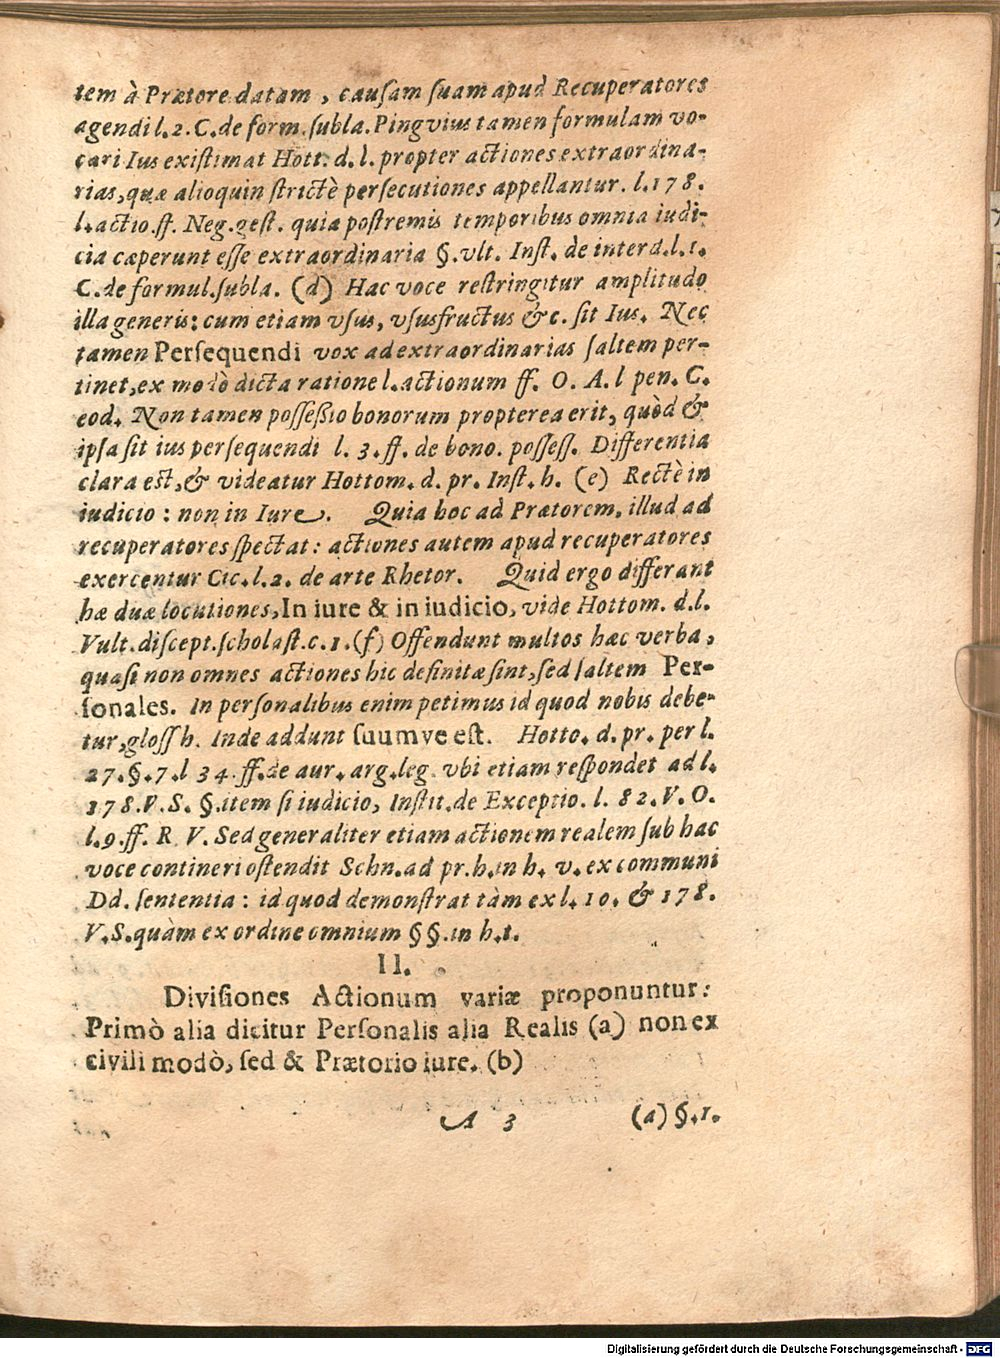 tem à Prætore datam, cauſam ſuam apud Recuperatores
agendi l.2. C. de form. ſubla. Pingvius tamen formulam vo-
cari Ius exiſtimat Hott. d. l. propter actiones extraordina-
rias, quæ alioquin ſtrictè perſecutiones appellantur. l. 178.
l. actio. ff. Neg. geſt. quia poſtremis temporibus omnia iudi-
cia cæperunt eſſe extraordinaria §. vlt. Inſt. de interd. l. 1.
C. de formul. ſubla. (d) Hac voce reſtringitur amplitudo
illa generis: cum etiam vſus, vſusfructus &c. ſit Ius. Nec
tamen Perſequendi vox ad extraordinarias ſaltem per-
tinet, ex modò dicta ratione l. actionum ff. O. A. l pen. C.
eod. Non tamen poſſeßio bonorum propterea erit, quòd &
ipſa ſit ius perſequendi l. 3. ff. de bono. poſſeſſ. Differentia
clara eſt, & videatur Hottom. d. pr. Inſt. h. (e) Rectè in
iudicio: non in Iure. Quia hoc ad Prætorem, illud ad
recuperatores ſpectat: actiones autem apud recuperatores
exercentur Cic. l. 2. de arte Rhetor. Quid ergo differant
hæ duæ locutiones, In iure & in iudicio, vide Hottom. d. l.
Vult. diſcept. ſcholaſt. c. 1. (f) Offendunt multos hæc verba,
quaſi non omnes actiones hic definitæ ſint, ſed ſaltem Per-
ſonales. In perſonalibus enim petimus id quod nobis debe-
tur, gloſſ h. Inde addunt ſuumve eſt. Hotto. d. pr. per l.
27. §. 7. l 34. ff. de aur. arg. leg. vbi etiam reſpondet ad l.
178. V. S. §. item ſi iudicio, Inſtit. de Exceptio. l. 82. V. O.
l. 9. ff. R V. Sed generaliter etiam actionem realem ſub hac
voce contineri oſtendit Schn. ad pr. h. in h. v. ex communi
Dd. ſententia: id quod demonſtrat tàm ex l. 10. & 178.
V. S. quàm ex ordine omnium §§. in h. t.
II.
Diviſiones Actionum variæ proponuntur:
Primò alia dicitur Perſonalis alia Realis (a) non ex
civili modò, ſed & Prætorio iure. (b)
A 3 (a) §. 1.
Digitalisierung gefördert durch die Deutsche Forschungsgemeinschaft - DFG